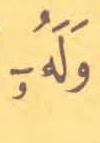 وَلَهُۥٓ